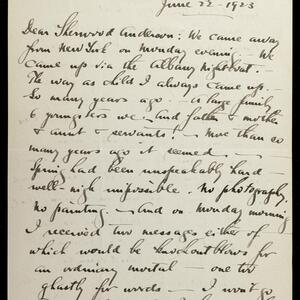 June 22 - 1923
Dear Sherwood Anderson: We came away
from New York on Monday evening. We
came up via the Albany night boat.
The way as child I always came up. -
So many years ago. - A large family
6 youngsters we - and father & mother
& aunt & servants! - More than so
many years ago it seemed -
Spring had been unspeakably hard -
well-nigh impossible. No photography,
no painting. - And on Monday morning
I received two messages either of
which would be knockout blows for
an ordinary mortal - one too
ghastly for words - I won't go